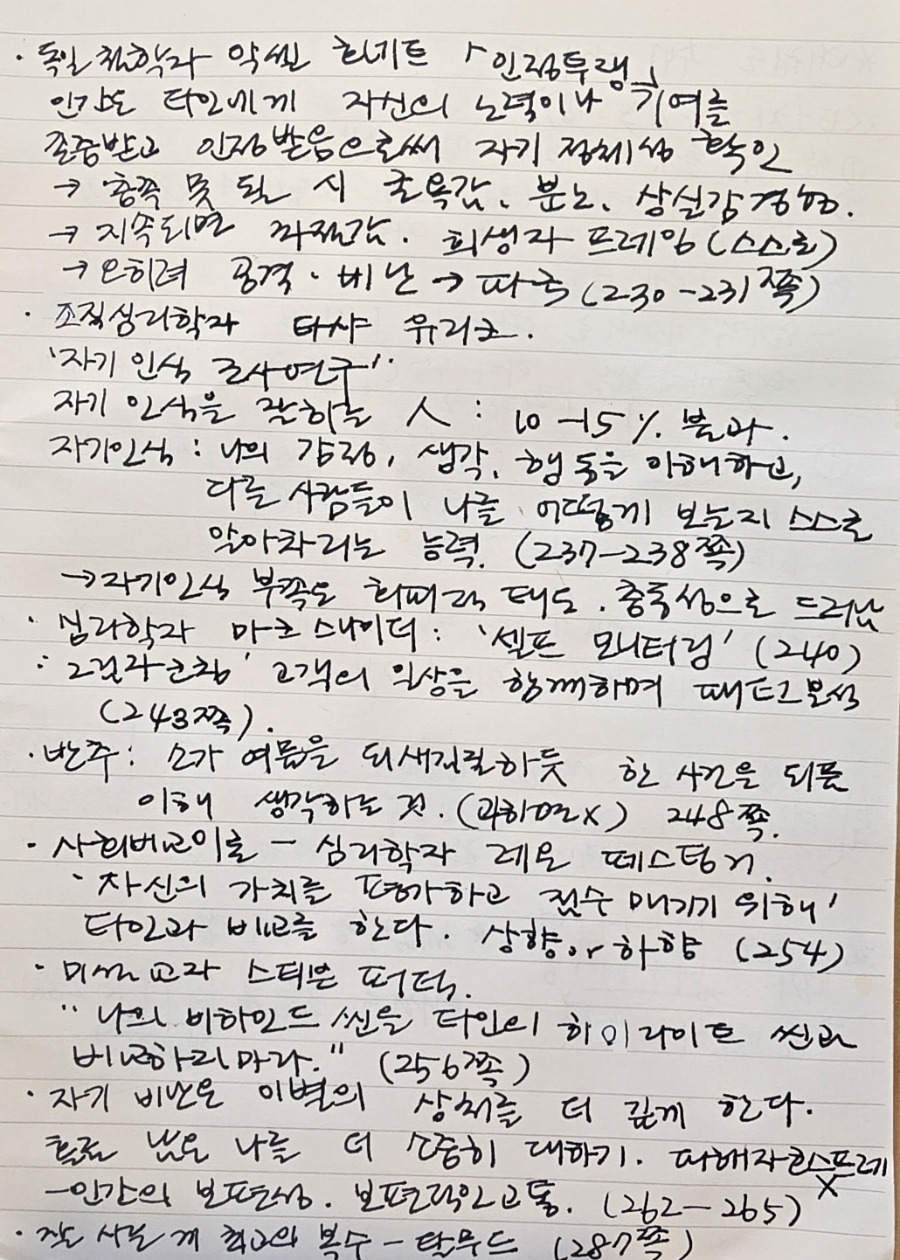 · 독일 철학자 악셀 호네트 「인정투쟁」
인간은 타인에게 자신의 노력이나 기여를
존중받고 인정받음으로써 자기 정체성 확인
→ 충족 못 될 시 굴욕감, 분노, 상실감 경험.
→ 지속되면 좌절감. 희생자 프레임(스스로)
→ 오히려 공격·비난 → 따축 (230-231쪽)
· 조직심리학자 타샤 유리크.
'자기 인식 조사연구'.
자기 인식을 잘하는 人 : 10-15% 불과.
자기인식 : 나의 감정, 생각, 행동을 이해하고,
다른 사람들이 나를 어떻게 보는지 스스로
알아차리는 능력. (237-238쪽)
→자기인식 부족은 회피적 태도. 충동성으로 드러남
· 심리학자 마크 스나이더 : '셀프 모니터링' (240)
고객의 의상을 함께하며 패턴분석
(243쪽).
· 반추 : 소가 여물을 되새김질하듯 한 사건을 되풀
이해 생각하는 것. (과하면X) 248쪽.
· 사회비교이론 - 심리학자 레온 페스팅거.
'자신의 가치를 평가하고 점수 매기기 위해'
타인과 비교를 한다. 상향or하향 (254)
· 미쓰교자 스티븐 퍼틱.
"나의 비하인드 씬을 타인의 하이라이트 씬과
비교하지마라." (256쪽)
· 자기 비난은 이별의 상처를 더 깊게 한다.
홀로 남은 나를 더 소중히 대하기. 피해자코스프레
X
-인간의 보편성. 보편적인고통. (262-265)
· 잘 사는 게 최고의 복수 - 탈무드 (287쪽)